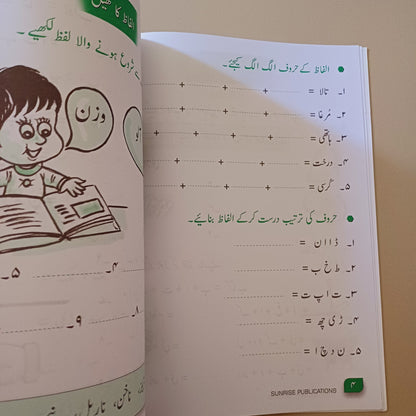 الفاظ کا کھیل
شروع ہونے والا لفظ لکھیے۔
وزن
۴۔
۵۔
۸۔
۹۔
ناخن، ناریل،
الفاظ کے حروف الگ الگ کیجئے۔
۱۔ تالا = + + +
۲۔ مُرغا = + + +
۳۔ ہاتھی = + + + +
۴۔ درخت = + + +
۵۔ کرسی = + + +
حروف کی ترتیب درست کرکے الفاظ بنائیے۔
۱۔ ڈ ا ا ن =
۲۔ ط خ ب =
۳۔ ت ا پ ت =
۴۔ ڑ ی چھ =
۵۔ ن د چ ا =
SUNRISE PUBLICATIONS
۴